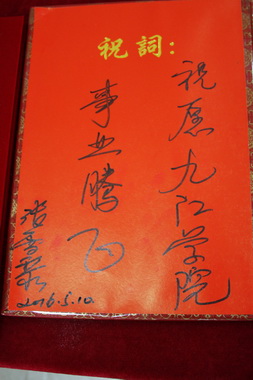 祝詞:
祝愿九江学院
事业腾飞
2016.5.10